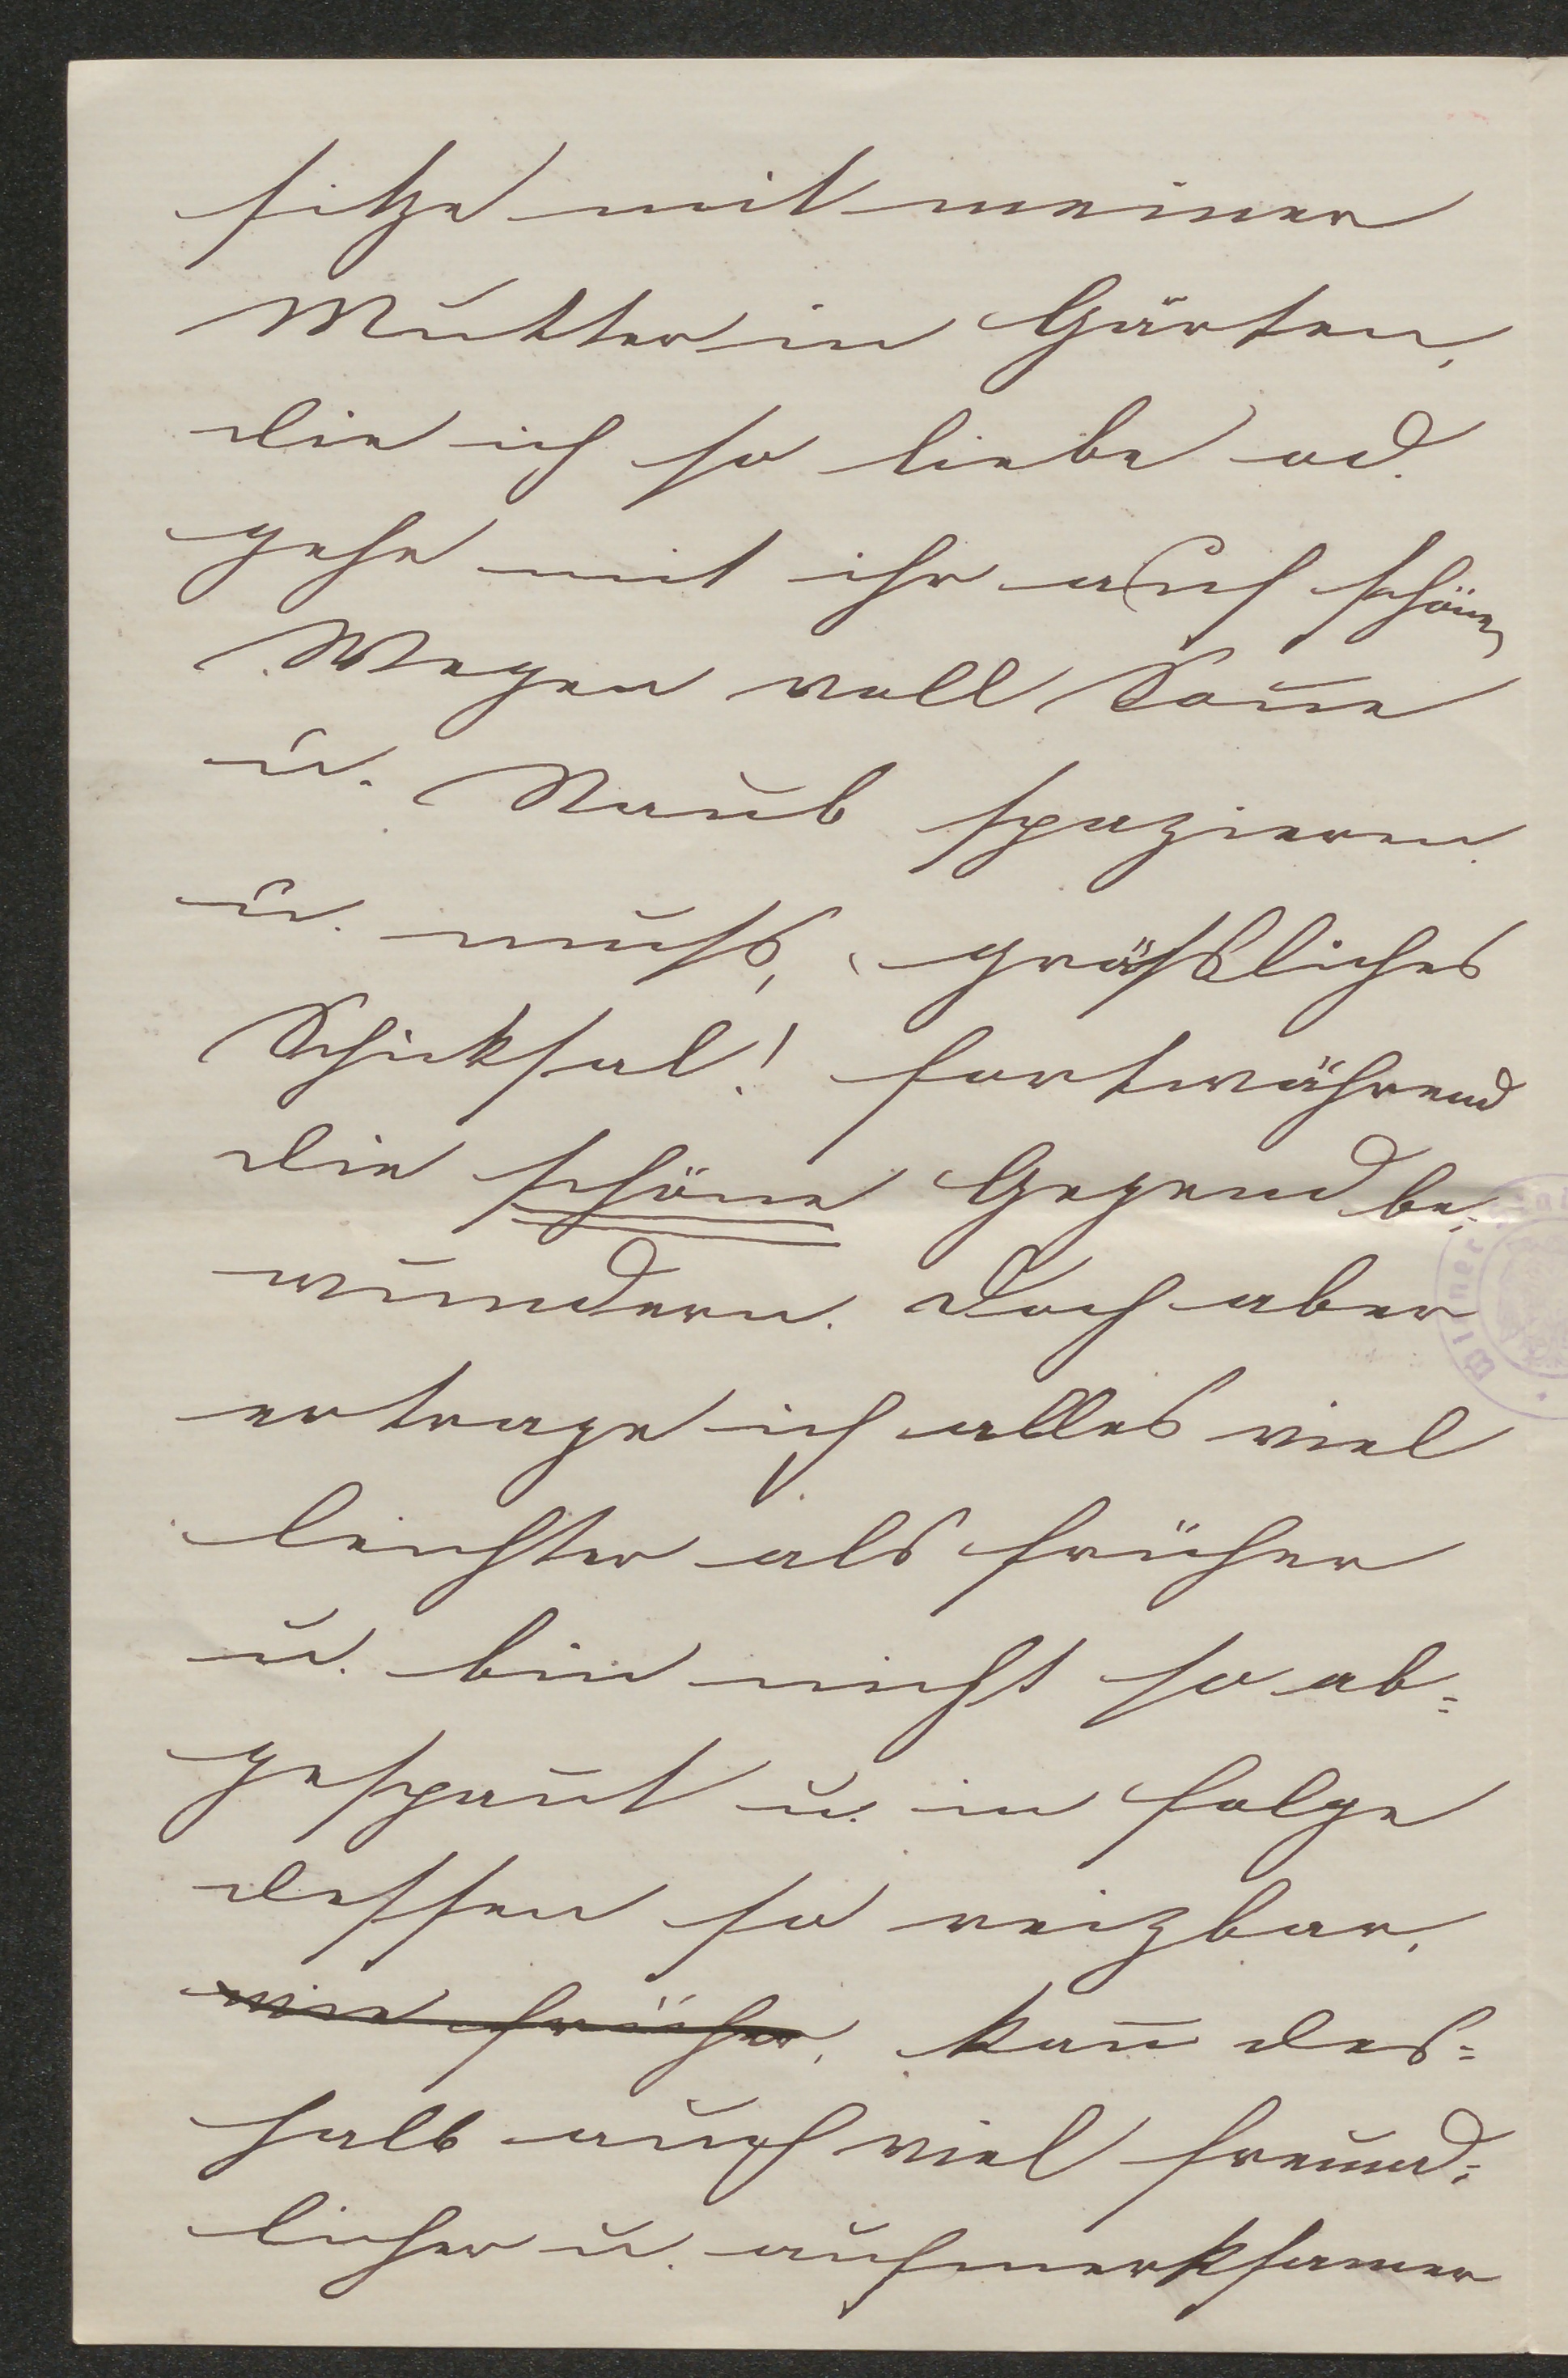 sitze mit meiner
Mutter in Gärten,
die ich so liebe od.
gehe mit ihr auf schönen
Wegen voll Soñe
u. Staub spazieren
u. muss, grässliches
Schicksal! fortwährend
die schöne Gegend be=
wundern. Doch aber
ertrage ich alles viel
leichter als früher
u. bin nicht so ab=
gespañt u. in folge
dessen so reizbar,
wie früher, kañ des=
halb auch viel freund=
licher u. aufmerksamer